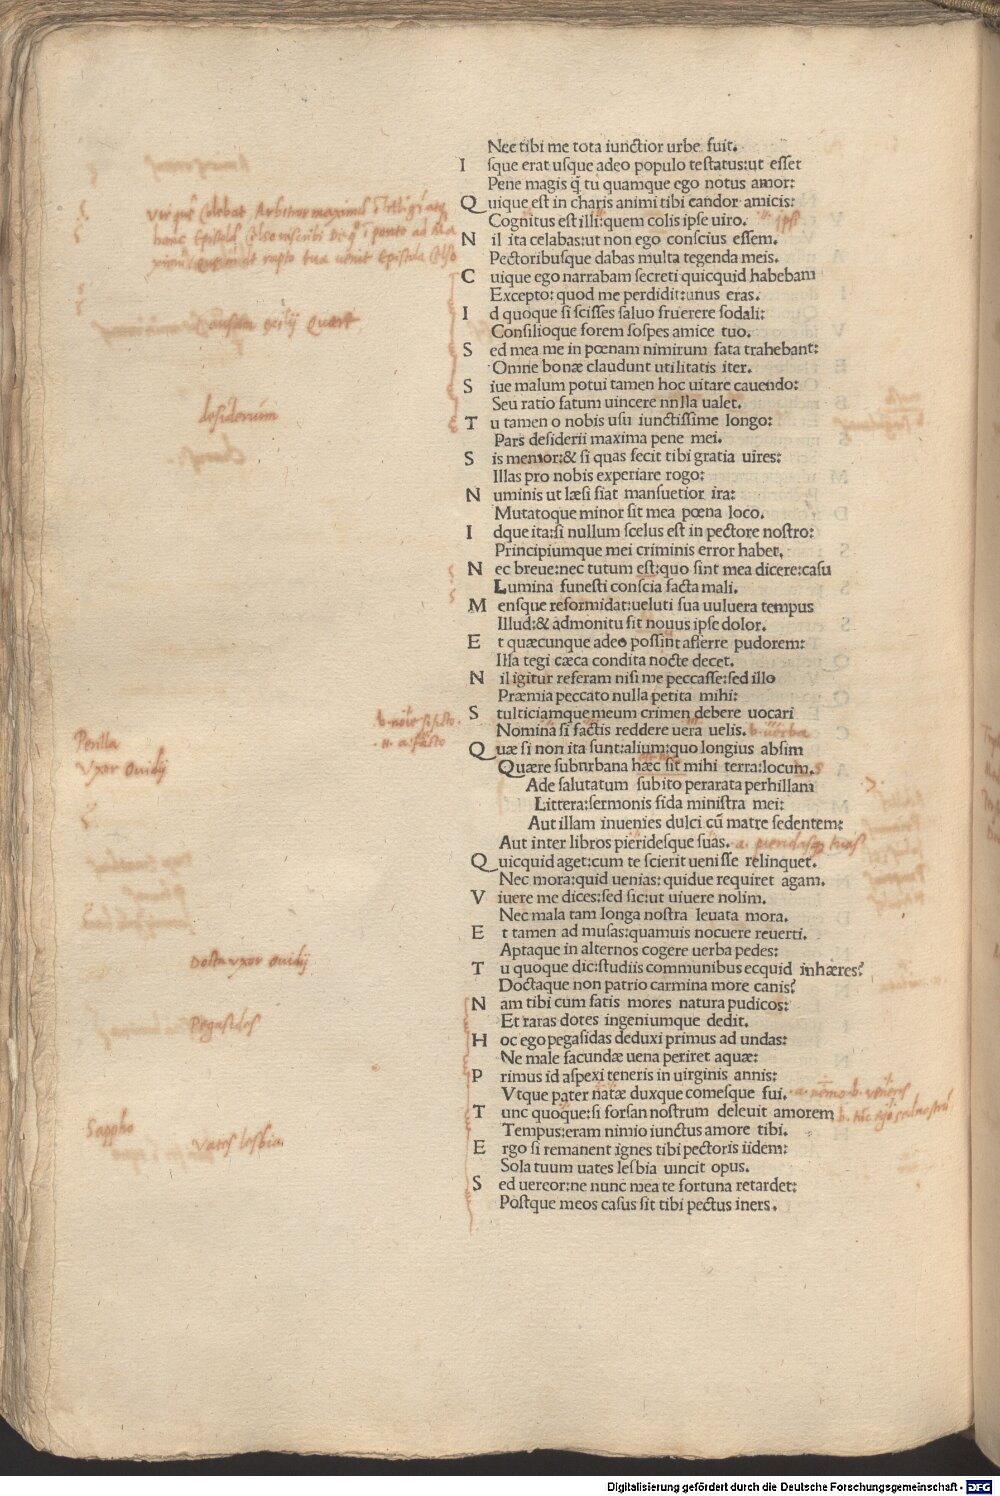 Nec tibi me tota iunctior urbe fuit.
I sque erat usque adeo populo testatus:ut esset
Pene magis q̃ tu quamque ego notus amor:
Q uique est in charis animi tibi candor amicis:
Cognitus est illi:quem colis ipse uiro. ipsi
N il ita celabas:ut non ego conscius essem.
Pectoribusque dabas multa tegenda meis.
C uique ego narrabam secreti quicquid habebam
Excepto: quod me perdidit:unus eras.
I d quoque si scisses saluo fruerere sodali:
Consilioque forem sospes amice tuo.
S ed mea me in pœnam nimirum fata trahebant:
Omne bonæ claudunt utilitatis iter.
S iue malum potui tamen hoc uitare cauendo:
Seu ratio fatum uincere nulla ualet.
desiderium
T u tamen o nobis usu iunctissime longo:
Pars desiderii maxima pene mei.
S is memor:& si quas fecit tibi gratia uires:
Illas pro nobis experiare rogo:
N uminis ut læsi fiat mansuetior ira:
Mutatoque minor sit mea pœna loco.
I dque ita:si nullum scelus est in pectore nostro:
Principiumque mei criminis error habet.
N ec breue:nec tutum est:quo sint mea dicere:casu
Lumina funesti conscia facta mali.
M ensque reformidat:ueluti sua uuluera tempus
Illud:& admonitu fit nouus ipse dolor.
E t quæcunque adeo possint afferre pudorem:
Illa tegi cæca condita nocte decet.
N il igitur referam nisi me peccasse:sed illo
Præmia peccato nulla petita mihi:
S tulticiamque meum crimen debere uocari
Nomina si factis reddere uera uelis.
Q uæ si non ita sunt:alium:quo longius absim
Quære suburbana hæc sit mihi terra:locum.
Perilla
Vxor Ouidij
Ade salutatum subito perarata perhillam
Littera:sermonis fida ministra mei:
Aut illam inuenies dulci cũ matre sedentem:
Aut inter libros pieridesque suas.
Q uicquid aget:cum te scierit uenisse relinquet.
Nec mora:quid uenias: quidue requiret agam.
V iuere me dices:sed sic:ut uiuere nolim.
Nec mala tam longa nostra leuata mora.
E t tamen ad musas:quamuis nocuere reuerti.
Aptaque in alternos cogere uerba pedes:
Docta vxor Ouidij
T u quoque dic:studiis communibus ecquid inhæres?
Doctaque non patrio carmina more canis?
N am tibi cum fatis mores natura pudicos:
Et raras dotes ingeniumque dedit.
Pegasides
H oc ego pegasidas deduxi primus ad undas:
Ne male facundæ uena periret aquæ:
P rimus id aspexi teneris in uirginis annis:
Vtque pater natæ duxque comesque fui.
T unc quoque:si forsan nostrum deleuit amorem
Tempus:eram nimio iunctus amore tibi.
Sappho
Vates lesbia
E rgo si remanent ignes tibi pectoris iidem:
Sola tuum uates lesbia uincit opus.
S ed uereor:ne nunc mea te fortuna retardet:
Postque meos casus sit tibi pectus iners.
Digitalisierung gefördert durch die Deutsche Forschungsgemeinschaft - DFG